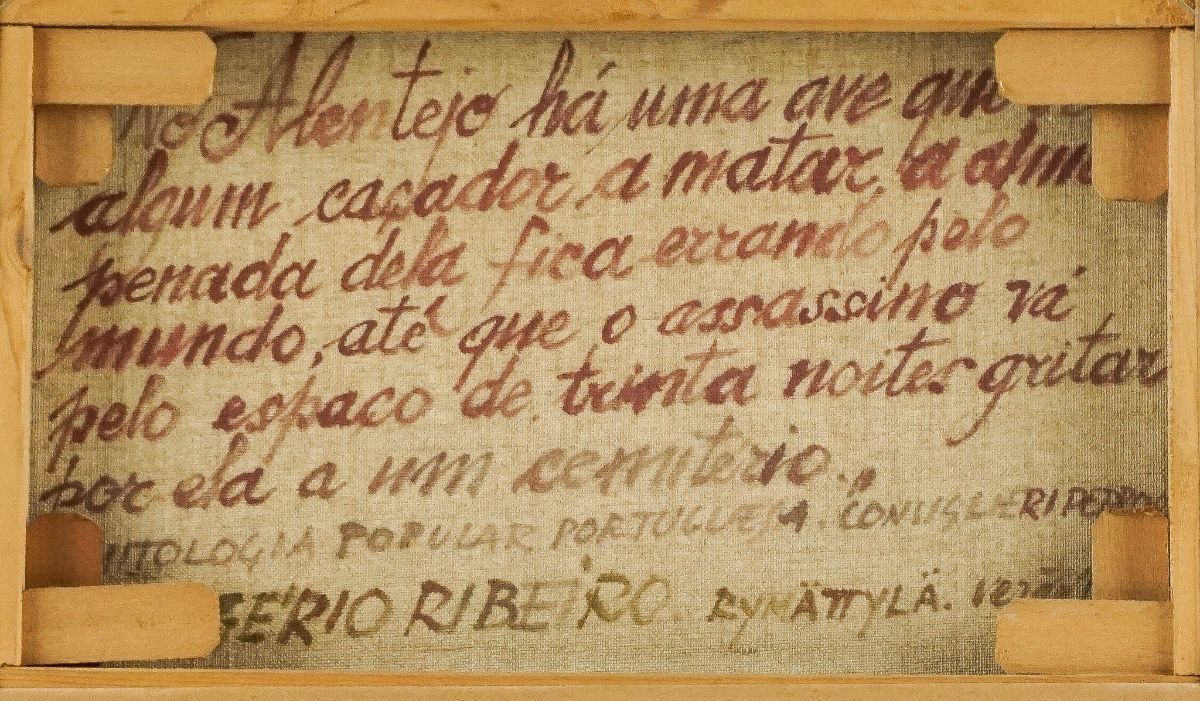 No Alentejo há uma ave que
algum caçador a matar, a
penada dela fica errando pelo
mundo, até que o assassino vá
pelo espaço de trinta noites gritar
por ela a um cemiterio.,,
POPULAR PORTUGUESA. CONSIGLIERI PEDROSO
RIBEIRO. RYMÄTTYLÄ.